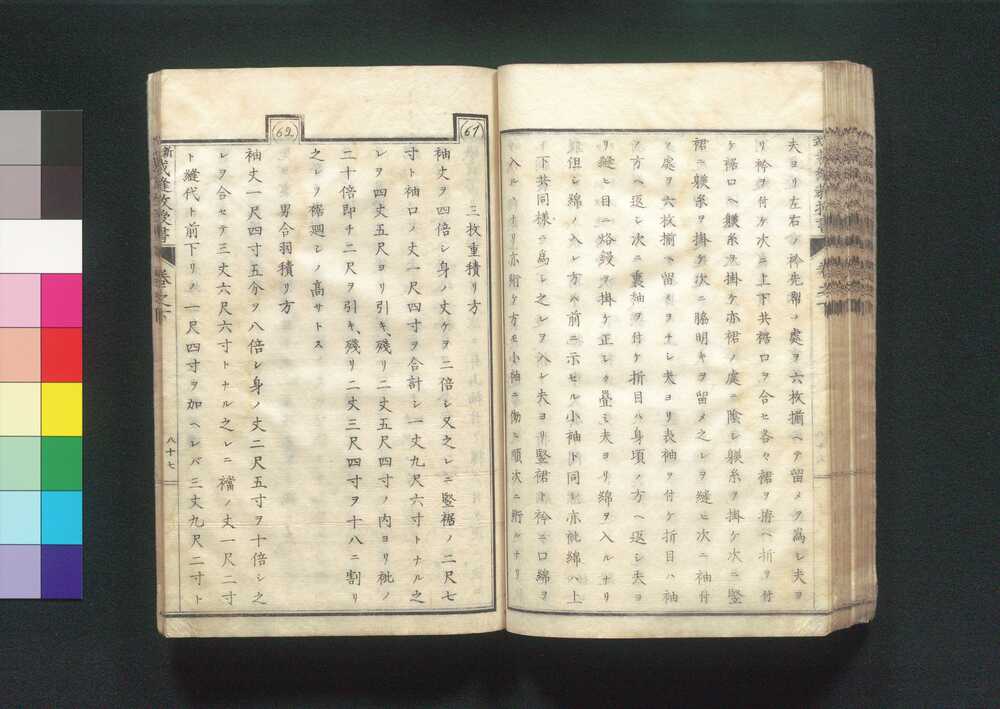 夫ヨリ左右ノ衿先幇ノ處ヲ六枚揃ヘテ留メヲ爲レ夫ヨ
リ衿ヲ付ケ次ニ上下共裾口ヲ合セ各々裾ヲ拵ヘ折ヲ付
ケ裾口ヘ躾糸ヲ掛ケ亦裙ノ處ニ陰レ躾糸ヲ掛ケ次ニ竪
裙ニ躾糸ヲ掛ケ次ニ脇明キヲ留メ之レヲ縫ヒ次ニ袖付
ノ處ヲ六枚揃ヘ留メヲナレ夫ヨリ表袖ヲ付ケ折目ハ袖
ノ方ヘ返レ次ニ裏袖ヲ付ケ折目ハ身頃ノ方ヘ返レ夫ヨ
リ縫ヒ目ニ烙鏝ヲ掛ケ正レク疊ミ夫ヨリ綿ヲ入ルナリ
但レ綿ノ入レ方ハ前ニ示セル小袖ト同レ亦紕綿ハ上
下共同樣ニ爲レ之レヲ入レ夫ヨリ竪裙ト衿ニ口綿ヲ
入ルヘキナリ亦絎ケ方モ小袖ニ働ヒ順次ニ絎ルナリ
(61)
三枚重積リ方
袖丈ヲ四倍レ身ノ丈ケヲ二倍レ又之レニ竪裾ノ二尺七
寸ト袖口ノ丈一尺四寸ヲ合計シ一丈九尺六寸トナル之
レヲ四丈五尺ヨリ引キ、殘リ二丈五尺四寸ノ內ヨリ紕ノ
二十倍即チ二尺ヲ引キ、殘リ二丈三尺四寸ヲ十八ニ割リ
之レヲ裾廻レノ高サトス
(62)
男合羽積リ方
袖丈一尺四寸五分ヲ八倍レ身ノ丈二尺五寸ヲ十倍シ之
レヲ合セテ三丈六尺六寸トナル之レニ襠ノ丈一尺二寸
ト縫代ト前下リノ一尺四寸ヲ加ヘレバ三丈九尺二寸ト
裁縫教授書
卷之
八十七